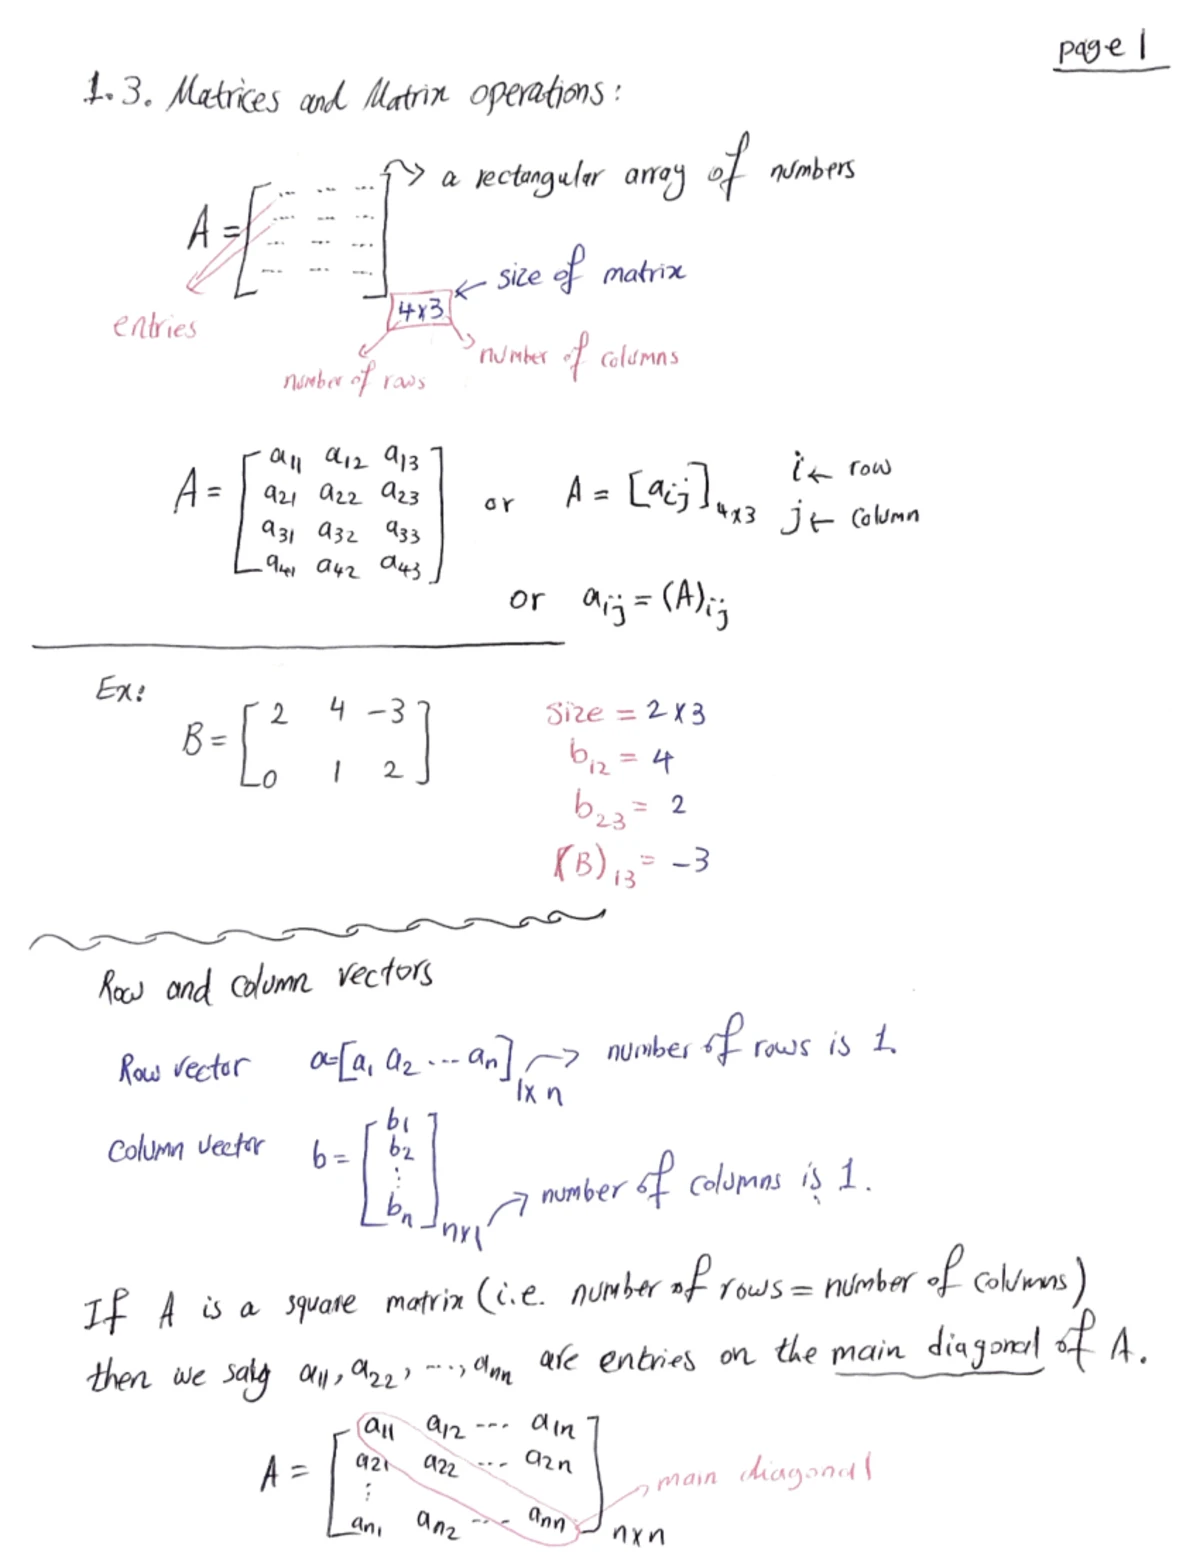 page 1
1.3. Matrices and Matrix operations:
A = [ ... ... ... ] → a rectangular array of numbers
4x3 ← size of matrix
entries
number of rows
number of columns
A = [ a11 a12 a13
a21 a22 a23
a31 a32 a33
a41 a42 a43 ]
or A = [aij]4x3
i ← row
j ← column
or aij = (A)ij
Ex:
B = [ 2 4 -3
0 1 2 ]
size = 2x3
b12 = 4
b23 = 2
(B)13 = -3
Row and column vectors
Row vector a=[a1 a2 ... an]1xn → number of rows is 1.
Column vector b = [ b1
b2
⋮
bn ]nx1 → number of columns is 1.
If A is a square matrix (i.e. number of rows = number of columns)
then we say a11, a22, ..., ann are entries on the main diagonal of A.
A = [ a11 a12 ... a1n
a21 a22 ... a2n
⋮
an1 an2 ... ann ]nxn
main diagonal